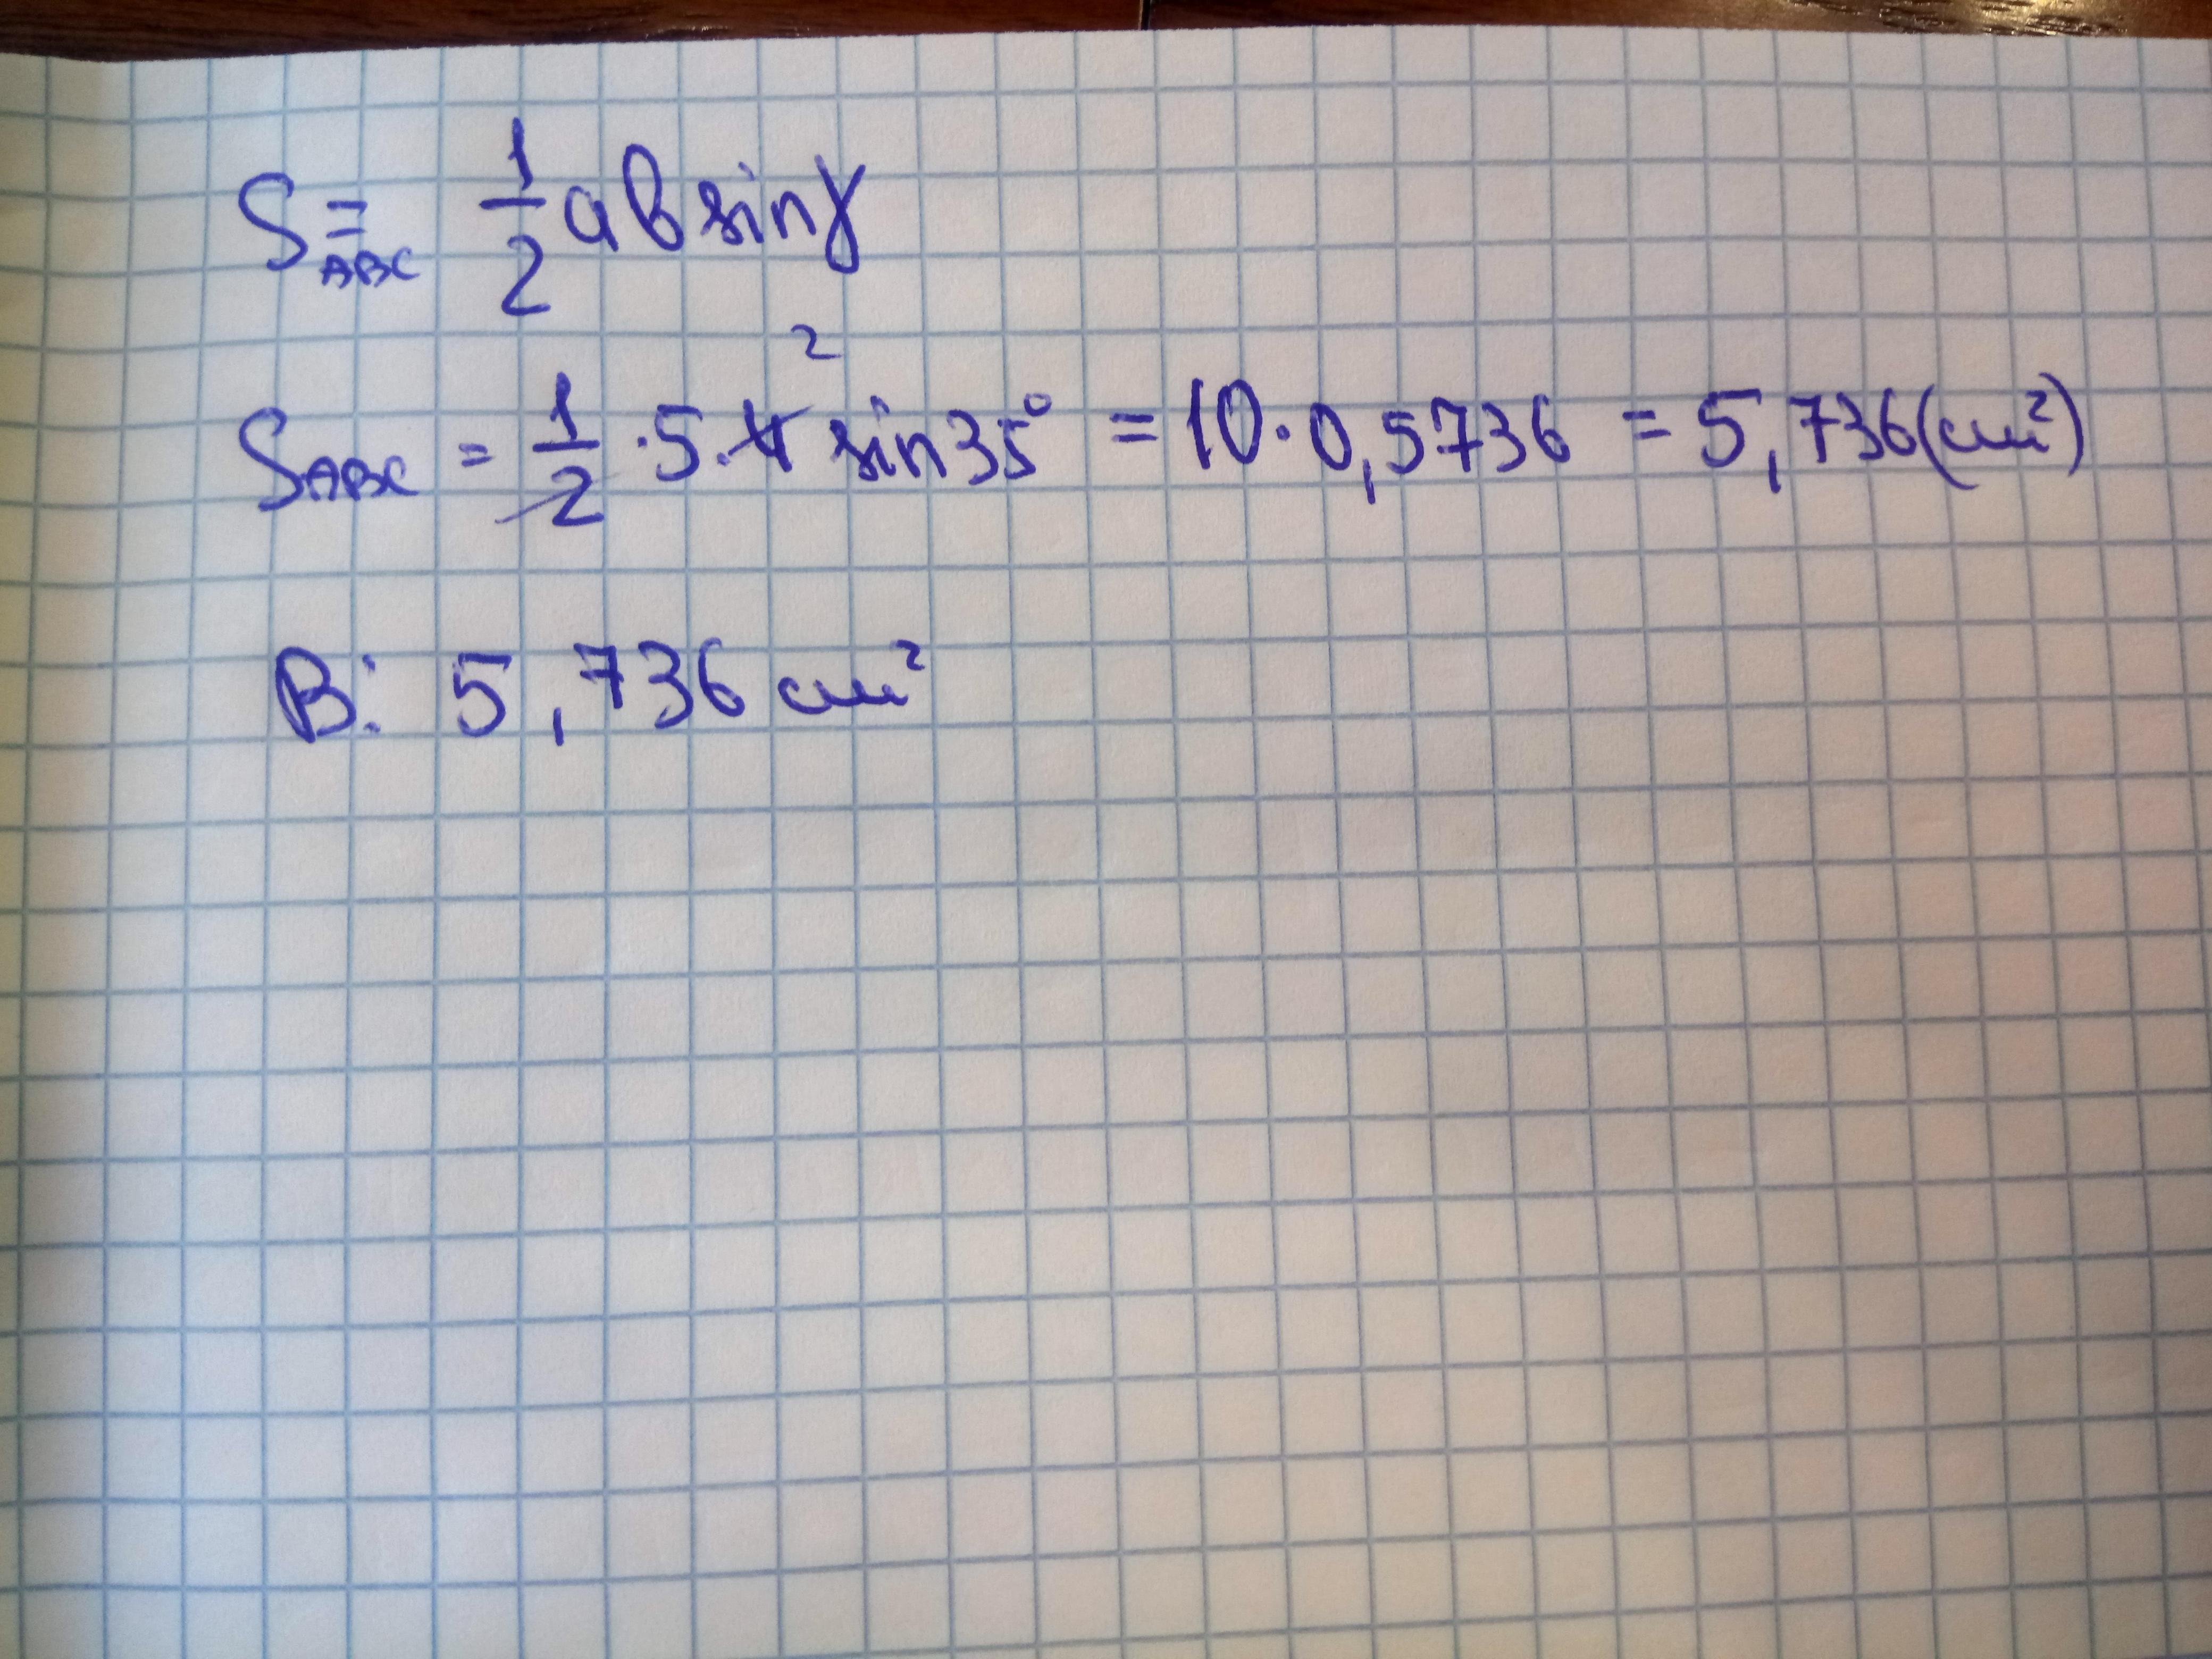 S_ABC = 1/2 ab sinγ
S_ABC = 1/2 · 5 · 4 2 sin35° = 10 · 0,5736 = 5,736(см²)
В: 5,736 см²